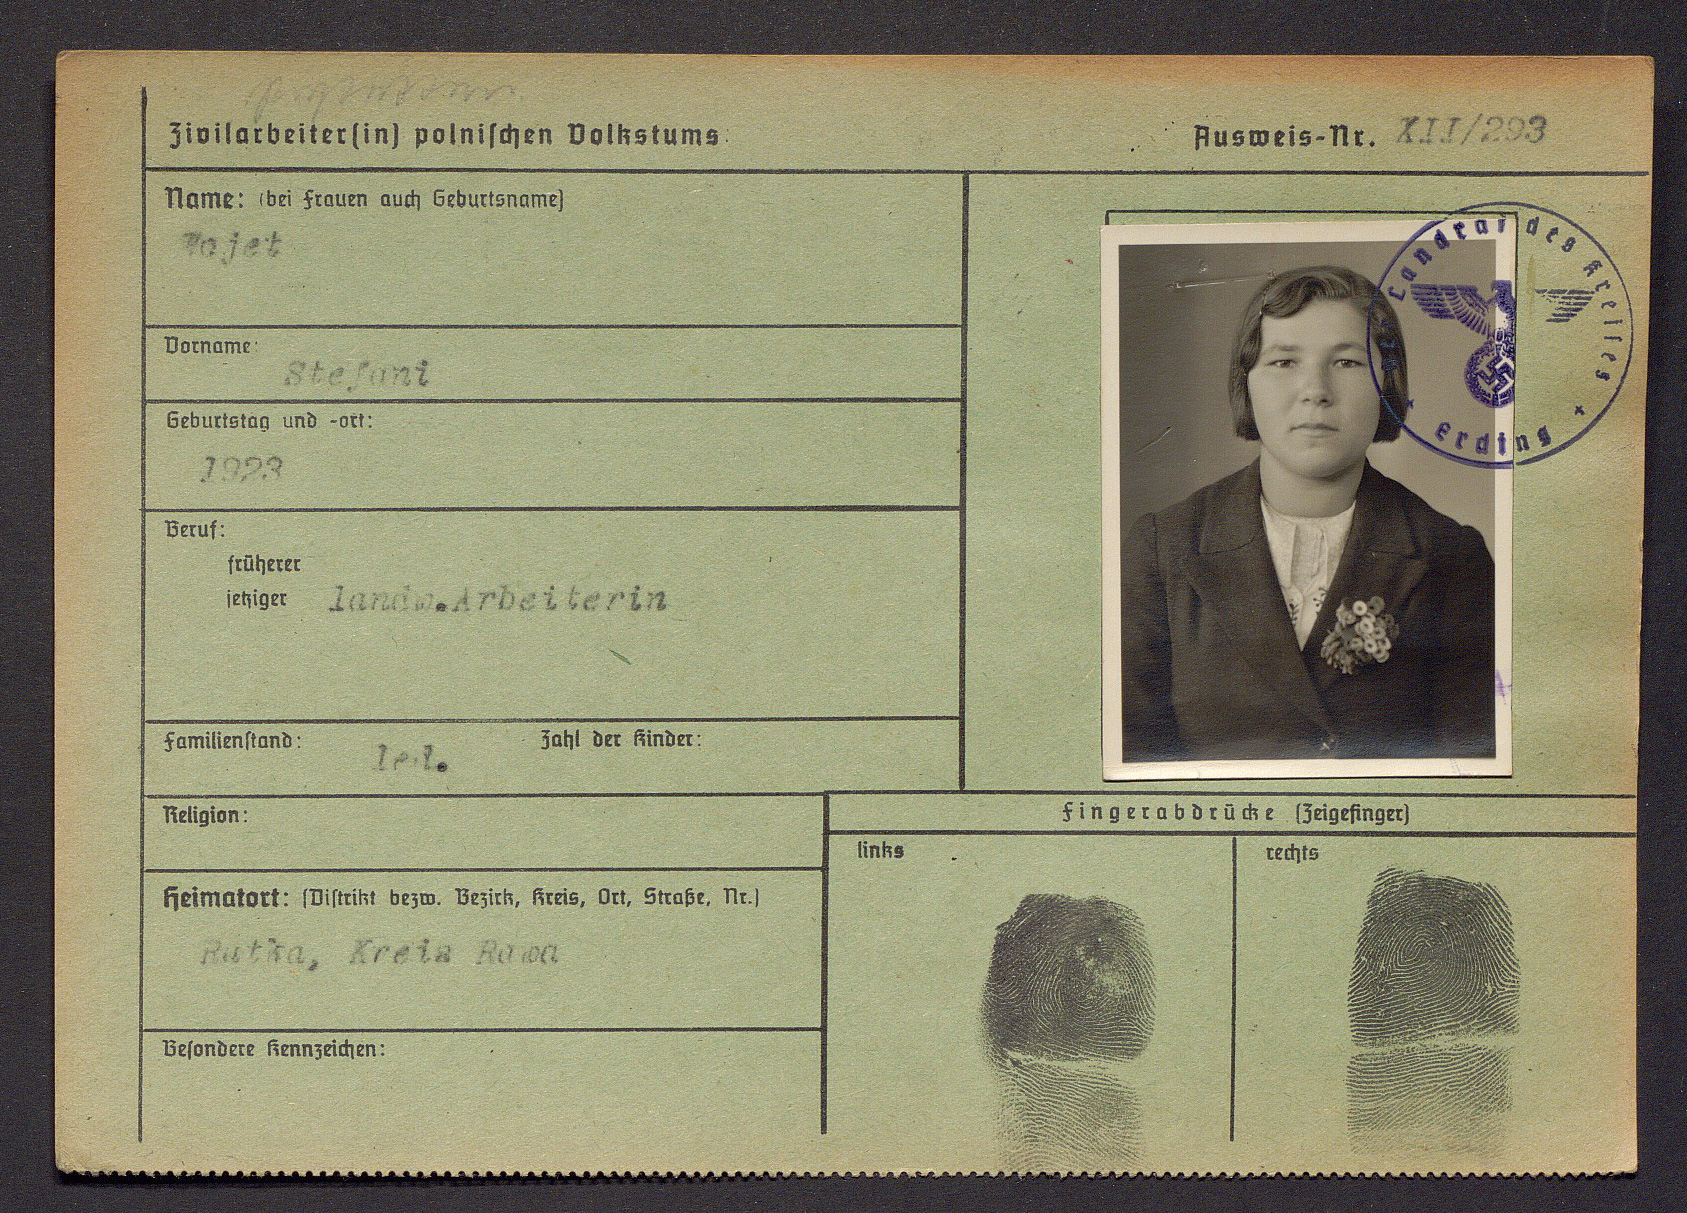 Zivilarbeiter(in) polnischen Volkstums
Ausweis-Nr. XII/293
Name: (bei Frauen auch Geburtsname)
Vorname:
Stefani
Geburtstag und -ort:
1923
Beruf:
früherer
jetziger landw.Arbeiterin
Familienstand: led. Zahl der Kinder:
Religion:
Heimatort: (Distrikt bezw. Bezirk, Kreis, Ort, Straße, Nr.)
Rutka, Kreis Rawa
Besondere Kennzeichen:
Landrat des Kreises
Erding
Fingerabdrücke (Zeigefinger)
links
rechts